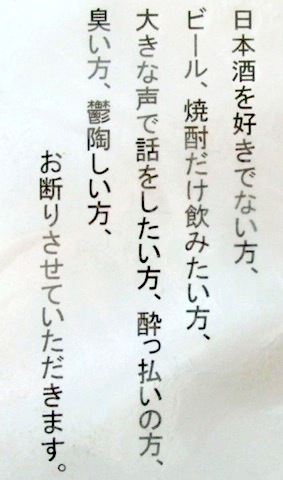 日本酒を好きでない方、
ビール、焼酎だけ飲みたい方、
大きな声で話をしたい方、酔っ払いの方、
臭い方、鬱陶しい方、
お断りさせていただきます。